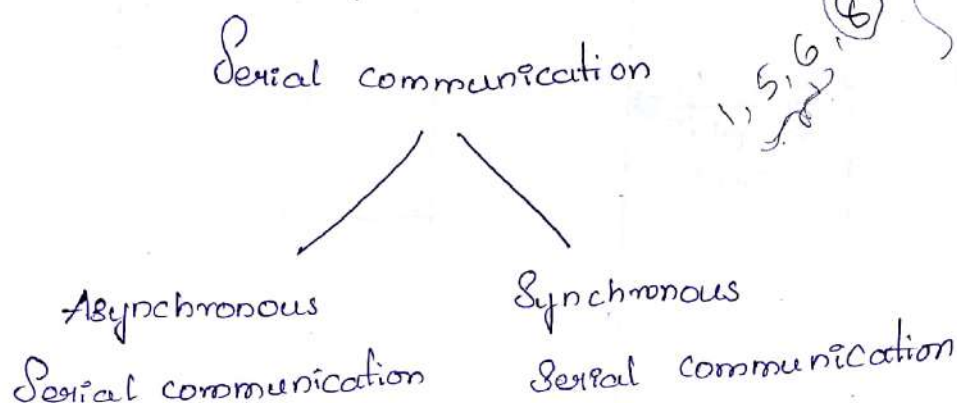 Serial communication
1, 5, 6, 8
Asynchronous
Serial communication
Synchronous
Serial communication